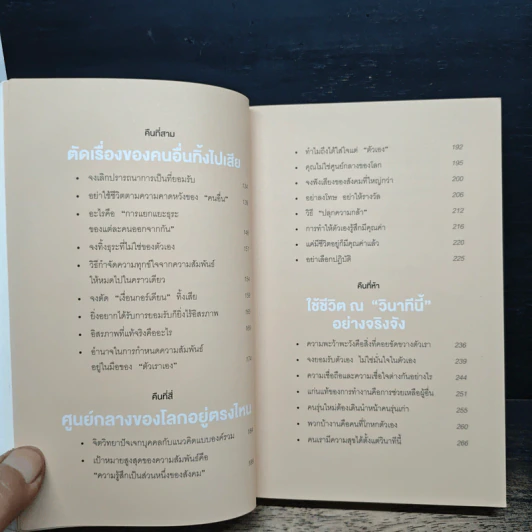 คืนที่สาม
ตัดเรื่องของคนอื่นทิ้งไปเสีย
• จงเลิกปรารถนาการเป็นที่ยอมรับ
• อย่าใช้ชีวิตตามความคาดหวังของ "คนอื่น"
• อะไรคือ "การแยกแยะธุระ
ของแต่ละคนออกจากกัน"
• จงทิ้งธุระที่ไม่ใช่ของตัวเอง
• วิธีกำจัดความทุกข์ใจจากความสัมพันธ์
ให้หมดไปในคราวเดียว
• จงตัด "เงื่อนกอร์เดียน" ทิ้งเสีย
• ยิ่งอยากได้รับการยอมรับก็ยิ่งไร้อิสรภาพ
• อิสรภาพที่แท้จริงคืออะไร
• อำนาจในการกำหนดความสัมพันธ์
อยู่ในมือของ "ตัวเราเอง"
คืนที่สี่
ศูนย์กลางของโลกอยู่ตรงไหน
• จิตวิทยาปัจเจกบุคคลกับแนวคิดแบบองค์รวม
• เป้าหมายสูงสุดของความสัมพันธ์คือ
"ความรู้สึกเป็นส่วนหนึ่งของสังคม"
• ทำไมถึงได้ใส่ใจแต่ "ตัวเอง" 192
• คุณไม่ใช่ศูนย์กลางของโลก 195
• จงฟังเสียงของสังคมที่ใหญ่กว่า 200
• อย่าลงโทษ อย่าให้รางวัล 206
• วิธี "ปลุกความกล้า" 212
• การทำให้ตัวเองรู้สึกมีคุณค่า 216
• แค่มีชีวิตอยู่ก็มีคุณค่าแล้ว 220
• อย่าเลือกปฏิบัติ 225
คืนที่ห้า
ใช้ชีวิต ณ "วินาทีนี้"
อย่างจริงจัง
• ความพะว้าพะวังคือสิ่งที่คอยขัดขวางตัวเรา 236
• จงยอมรับตัวเอง ไม่ใช่มั่นใจในตัวเอง 239
• ความเชื่อถือและความเชื่อใจต่างกันอย่างไร 244
• แก่นแท้ของการทำงานคือการช่วยเหลือผู้อื่น 251
• คนรุ่นใหม่ต้องเดินนำหน้าคนรุ่นเก่า 255
• พวกบ้างานคือคนที่โกหกตัวเอง 260
• คนเรามีความสุขได้ตั้งแต่วินาทีนี้ 266